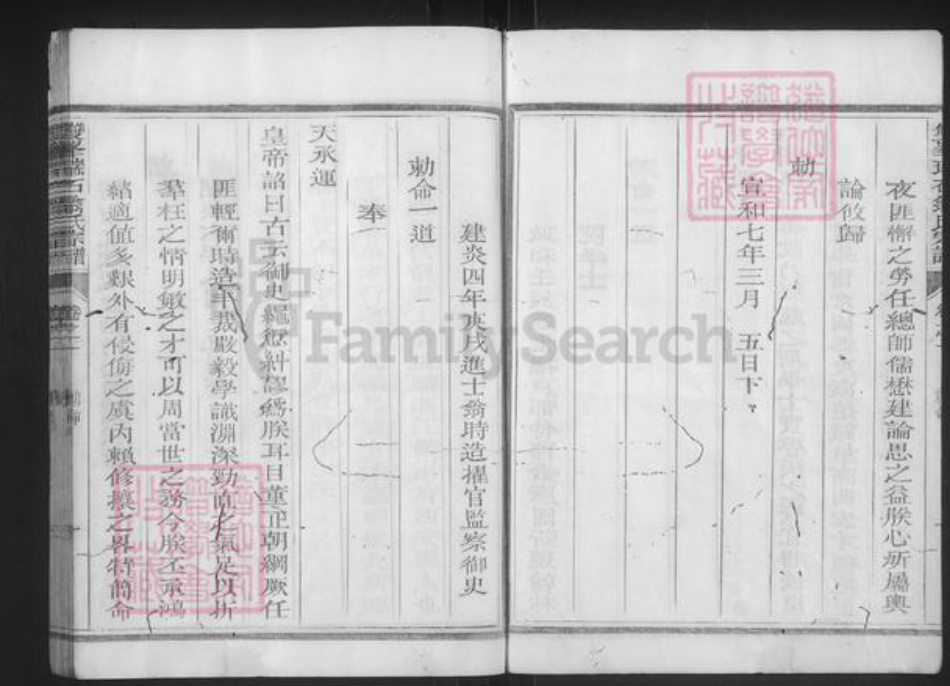 夜匪懈之勞任總師儒懋建論思之益朕心所屬輿
論攸歸
勅
宣和七年三月 五日下
建炎四年庚戌進士翁時造擢官監察御史
勅命一道
奉
天承運
皇帝詔曰古云御史繩愆糾謬為朕耳目董正朝綱厥任
匪輕爾時造丰裁嚴毅學識淵深勁直之氣足以折
羣枉之情明敏之才可以周當世之務今朕丕承鴻
緒適值多艱外有侵侮之虞內賴修攘之畧特簡命
FamilySearch